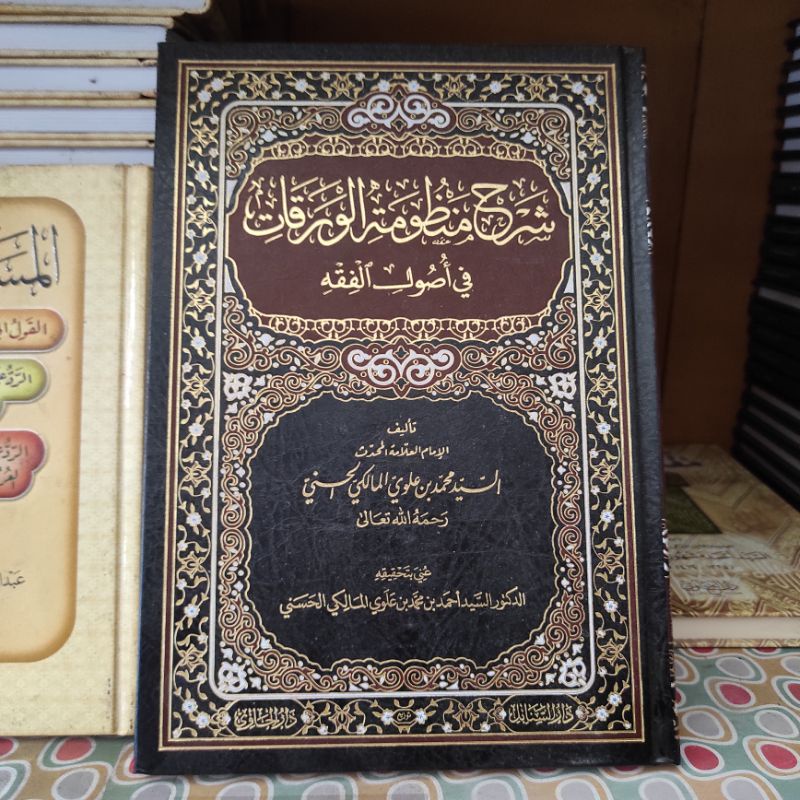 شرح منظومة الورقات
في أُصُولِ الْفِقْهِ
تأليف
الإمام العلامة المحدث
السيد محمد بن علوي المالكي الحسني
رحمه الله تعالى
عُني بتحقيقه
الدكتور السَّيِّد أحمد بن محمد بن علوي المالكي الحسني
دار السنابل
دار الحاوي
المس
القول ا
الرد ع
الرد ع
عبد